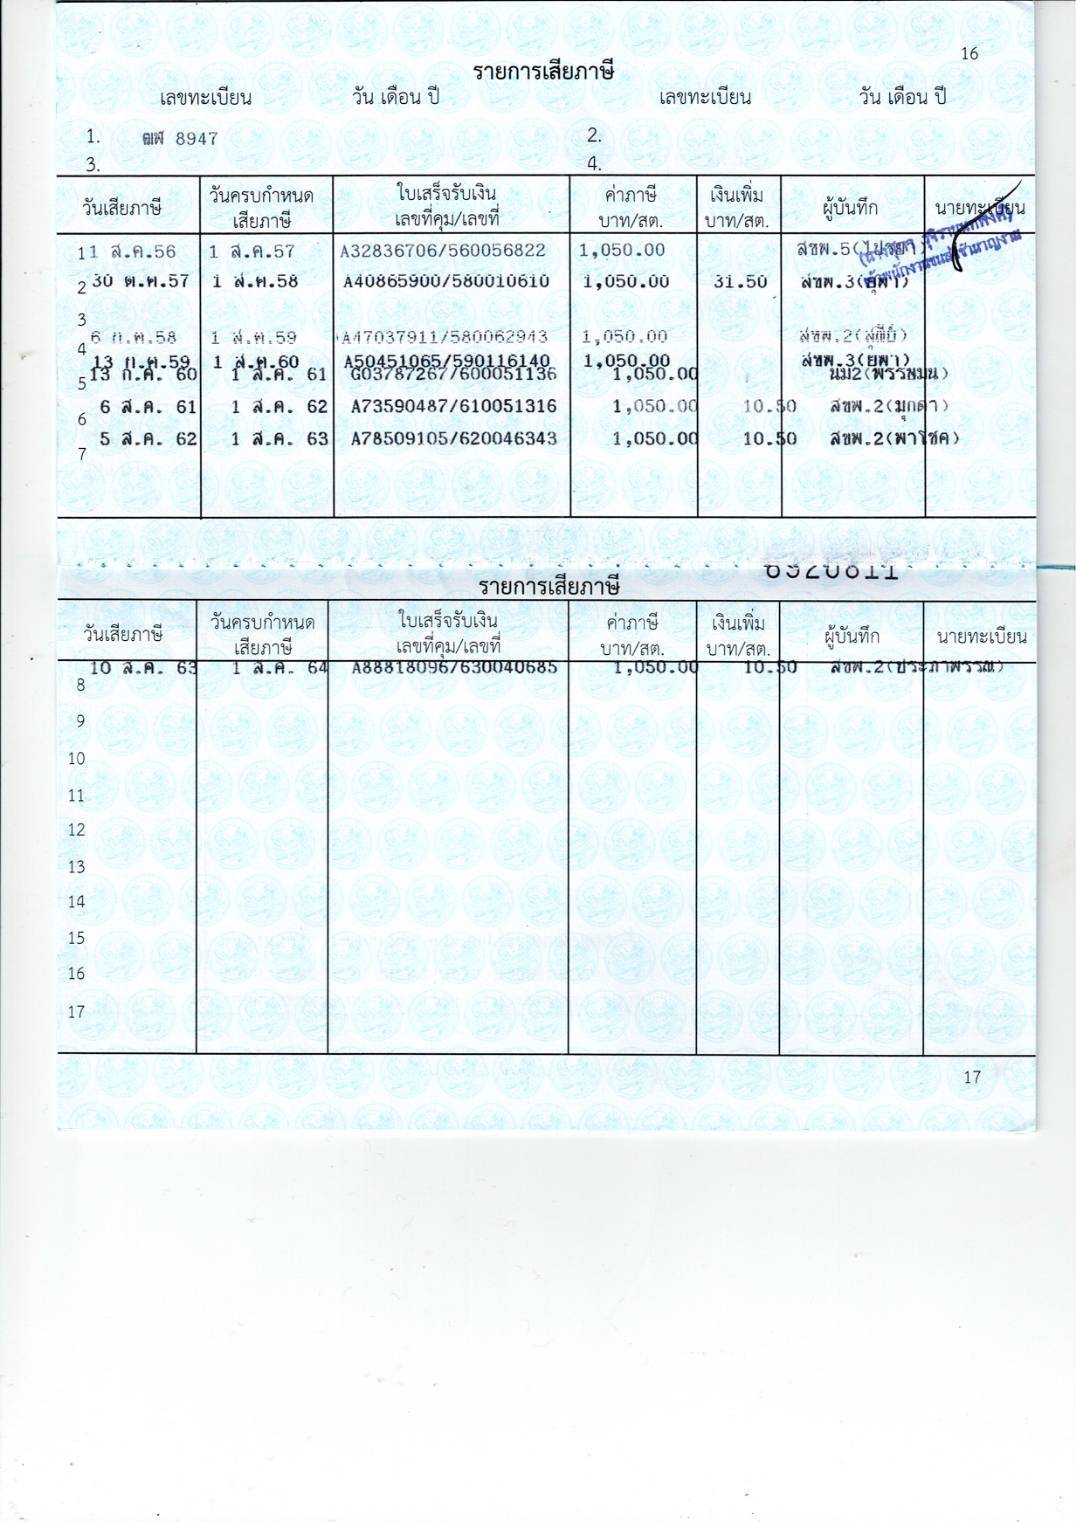 16
รายการเสียภาษี
เลขทะเบียน วัน เดือน ปี เลขทะเบียน วัน เดือน ปี
1. ฒฬ 8947 2.
3. 4.
วันเสียภาษี วันครบกำหนดเสียภาษี ใบเสร็จรับเงิน เลขที่คุม/เลขที่ ค่าภาษี บาท/สต. เงินเพิ่ม บาท/สต. ผู้บันทึก นายทะเบียน
1 1 ส.ค.56 1 ส.ค.57 A32836706/560056822 1,050.00 สขพ.5
2 30 ต.ค.57 1 ส.ค.58 A40865900/580010610 1,050.00 31.50 สขพ.3(ยุพา)
3
6 ก.ค.58 1 ส.ค.59 A47037911/580062943 1,050.00 สขพ.2
4
13 ก.ค.59 1 ส.ค.60 A50451065/590116140 1,050.00 สขพ.3(ยุพา)
5 13 ก.ค. 60 1 ส.ค. 61 G03787267/600051136 1,050.00 นม2(พรรษมน)
6 6 ส.ค. 61 1 ส.ค. 62 A73590487/610051316 1,050.00 10.50 สขพ.2(มุกดา)
5 ส.ค. 62 1 ส.ค. 63 A78509105/620046343 1,050.00 10.50 สขพ.2(พาโชค)
7
6920811
รายการเสียภาษี
วันเสียภาษี วันครบกำหนดเสียภาษี ใบเสร็จรับเงิน เลขที่คุม/เลขที่ ค่าภาษี บาท/สต. เงินเพิ่ม บาท/สต. ผู้บันทึก นายทะเบียน
10 ส.ค. 63 1 ส.ค. 64 A88818096/630040685 1,050.00 10.50 สขพ.2(ประภาพรรณ)
8
9
10
11
12
13
14
15
16
17
17